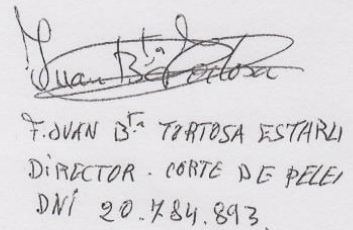 Juan Bta Tortosa
F. JUAN Bta TORTOSA ESTARLI
DIRECTOR. CORTE DE PELEI
DNÍ 20.784.893.